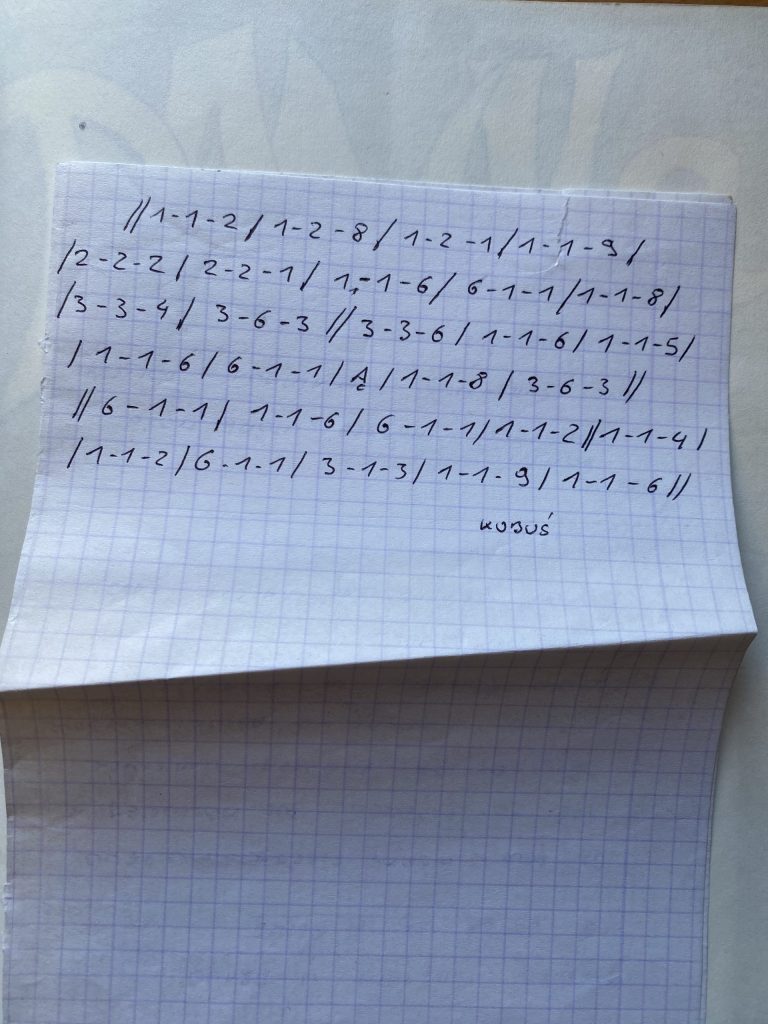 //1-1-2/ 1-2-8/ 1-2-1/1-1-9/
/2-2-2/ 2-2-1/ 1-1-6/ 6-1-1/1-1-8/
/3-3-4/ 3-6-3 // 3-3-6/ 1-1-6/ 1-1-5/
/1-1-6/ 6-1-1/ Ą /1-1-8/ 3-6-3//
//6-1-1/ 1-1-6/ 6-1-1/1-1-2//1-1-4/
/1-1-2/6-1-1/ 3-1-3/ 1-1-9/ 1-1-6//
KUBUŚ